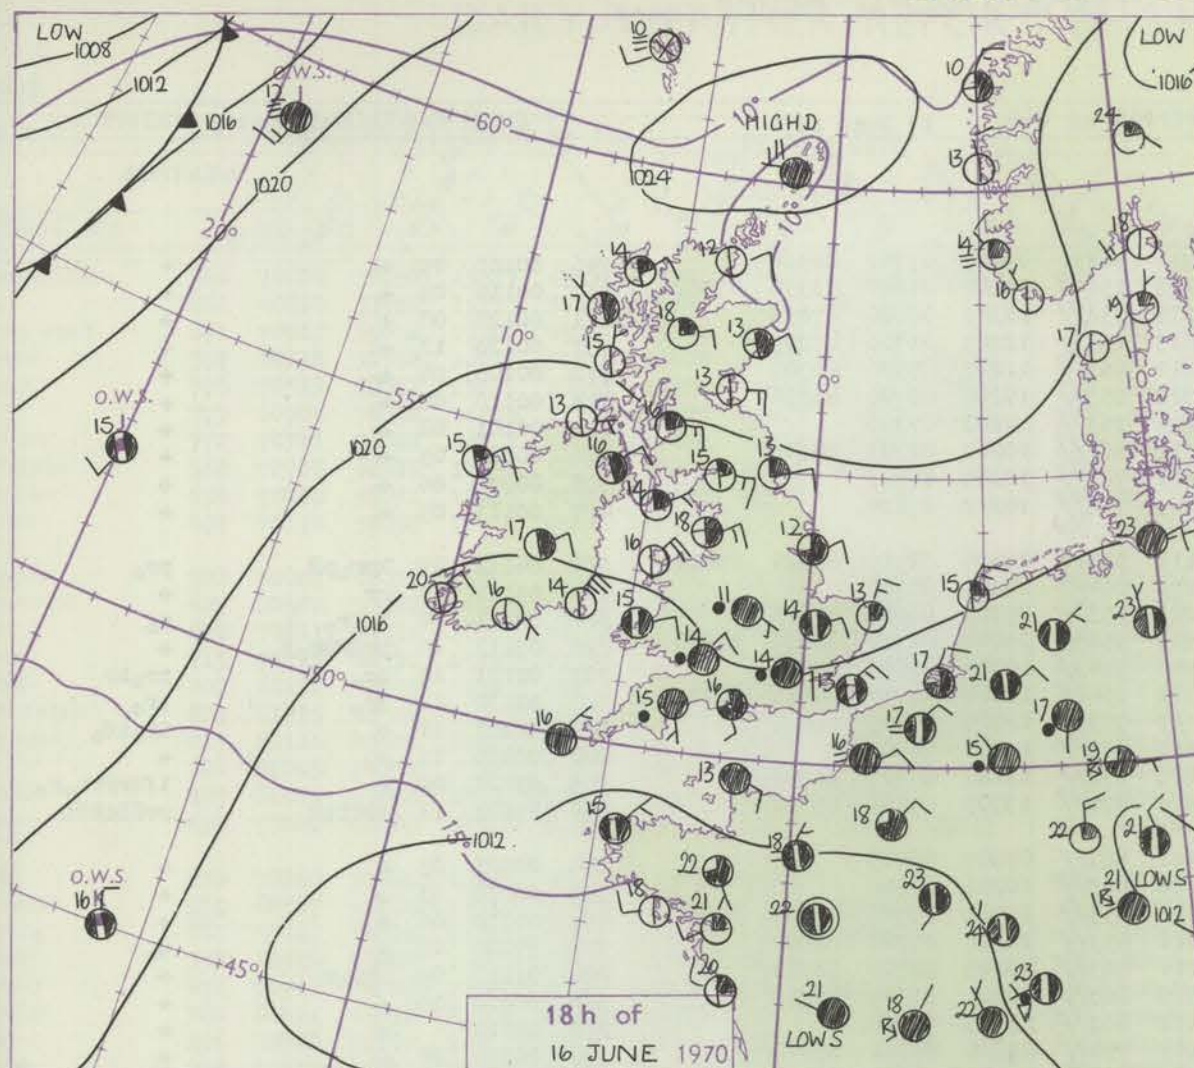 LOW
1008
1012
1016
1020
O.W.S.
12
20°
10
60°
HIGH D
10°
1024
10°
10
13
LOW
1016
24
14
17
18
15
12
13
13
14
16
18
19
17
10°
10°
0°
55°
O.W.S.
15
1020
15
13
16
16
15
13
14
18
16
17
12
20
16
14
15
11
14
13
15
23
23
21
1016
50°
14
14
15
16
16
13
17
21
17
17
16
15
19
13
15
18
22
21
1012
15°
18
22
18
21
22
23
24
21
LOWS
1012
O.W.S.
16
45°
20
21
LOWS
18
22
23
18h of
16 JUNE 1970